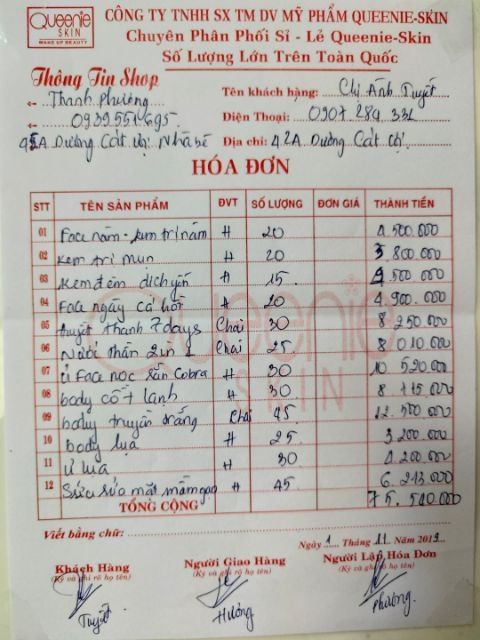 Queenie
SKIN
MAKE UP BEAUTY
CÔNG TY TNHH SX TM DV MỸ PHẨM QUEENIE-SKIN
Chuyên Phân Phối Sỉ - Lẻ Queenie-Skin
Số Lượng Lớn Trên Toàn Quốc
Thông Tin Shop
Thanh phương
0939551695
Dường Cát Nhà bé
Tên khách hàng: Chị Ánh Tuyết
Điện Thoại: 0907 284 331
Địa chỉ: 42A Dường Cát
HÓA ĐƠN
STT TÊN SẢN PHẨM ĐVT SỐ LƯỢNG ĐƠN GIÁ THÀNH TIỀN
01 Face nám - kem trị nám H 20 4.500.000
02 Kem trị mụn H 20 3.800.000
03 Kem đêm dịch yến H 15 4.500.000
04 Face ngày cá hồi H 20 4.900.000
05 huyết thanh 7 days Chai 30 8.250.000
06 Nước thần 2in1 Chai 25 8.010.000
07 ủ Face nọc rắn Cobra H 30 10.520.000
08 body cốt lanh H 30 8.115.000
09 body truyền trắng Chai 45 12.500.000
10 body lụa H 25 3.200.000
11 ủ lụa H 30 4.200.000
12 Sữa rửa mặt mầm gạo H 45 6.213.000
TỔNG CỘNG 75.510.000
Viết bằng chữ:
Ngày 1 Tháng 11 Năm 2019
Khách Hàng
(Ký và ghi rõ họ tên)
Tuyết
Người Giao Hàng
(Ký và ghi rõ họ tên)
Hường
Người Lập Hóa Đơn
(Ký và ghi rõ họ tên)
Phương